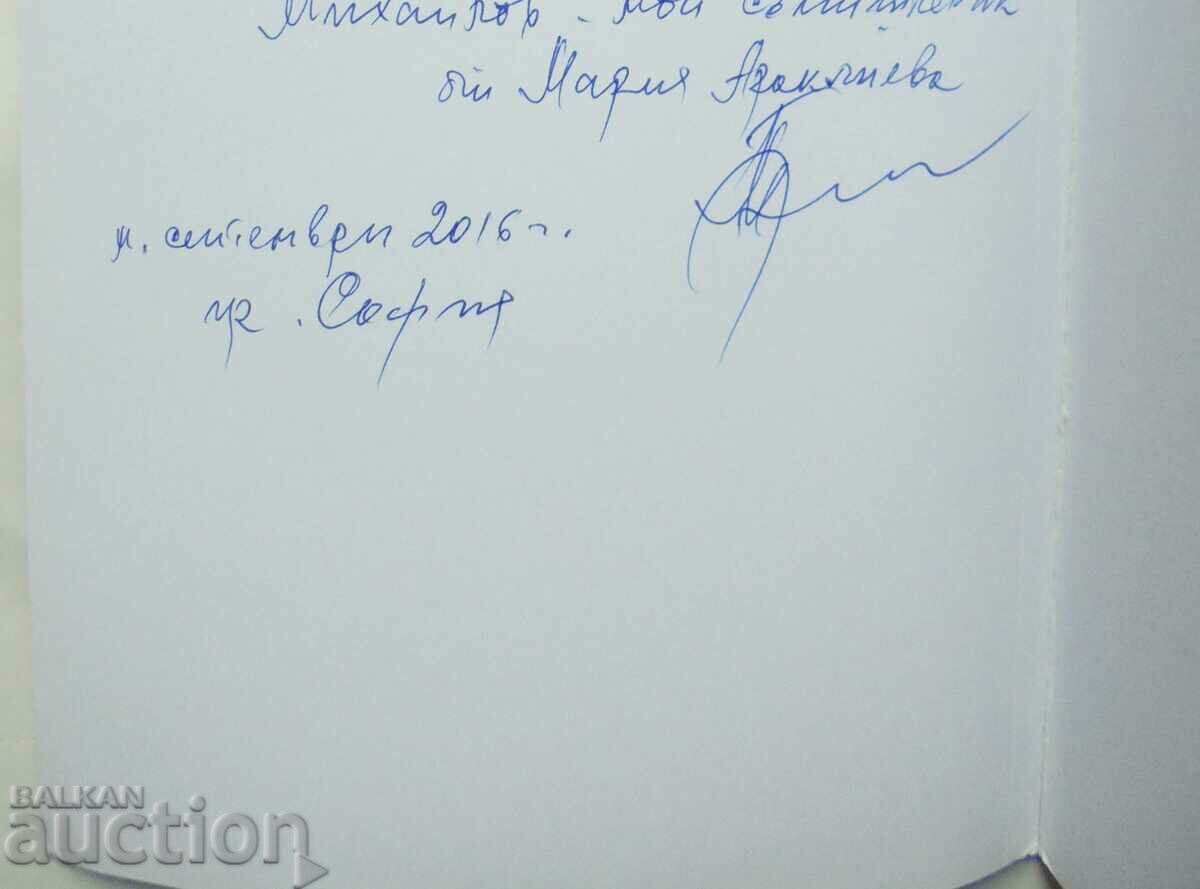 Михайлов - мой
от Мария Аракчиева
м. септември 2016 г.
гр. София
BALKAN
auction